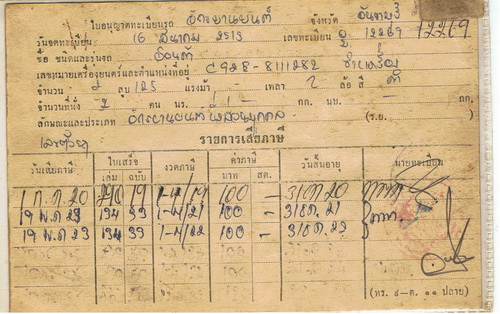 ใบอนุญาตทะเบียนรถ จักรยานยนต์ จังหวัด จันทบุรี
วันจดทะเบียน 16 มีนาคม 2513 เลขทะเบียน 12269 12269
ชื่อ ชนิดและรุ่นรถ ฮอนด้า
เลขหมายเครื่องยนต์และตำแหน่งที่อยู่ C92E-8111282
จำนวน 2 สูบ 125 แรงม้า - เพลา 2 ล้อ สี ดำ
จำนวนที่นั่ง 2 คน นร. กก. นบ. - กก.
ลักษณะและประเภท จักรยานยนต์ส่วนบุคคล (ร.ย. )
รายการเสียภาษี
วันเสียภาษี ใบเสร็จ เล่ม ฉบับ งวดภาษี ค่าภาษี บาท สต. วันสิ้นอายุ นายทะเบียน
1 ก.ค. 20 19 100 - 31 ธ.ค. 20
19 พ.ค 23 194 39 1-4/21 100 - 31 ธ.ค. 21
19 พ.ค 23 194 39 1-4/22 100 - 31 ธ.ค. 23